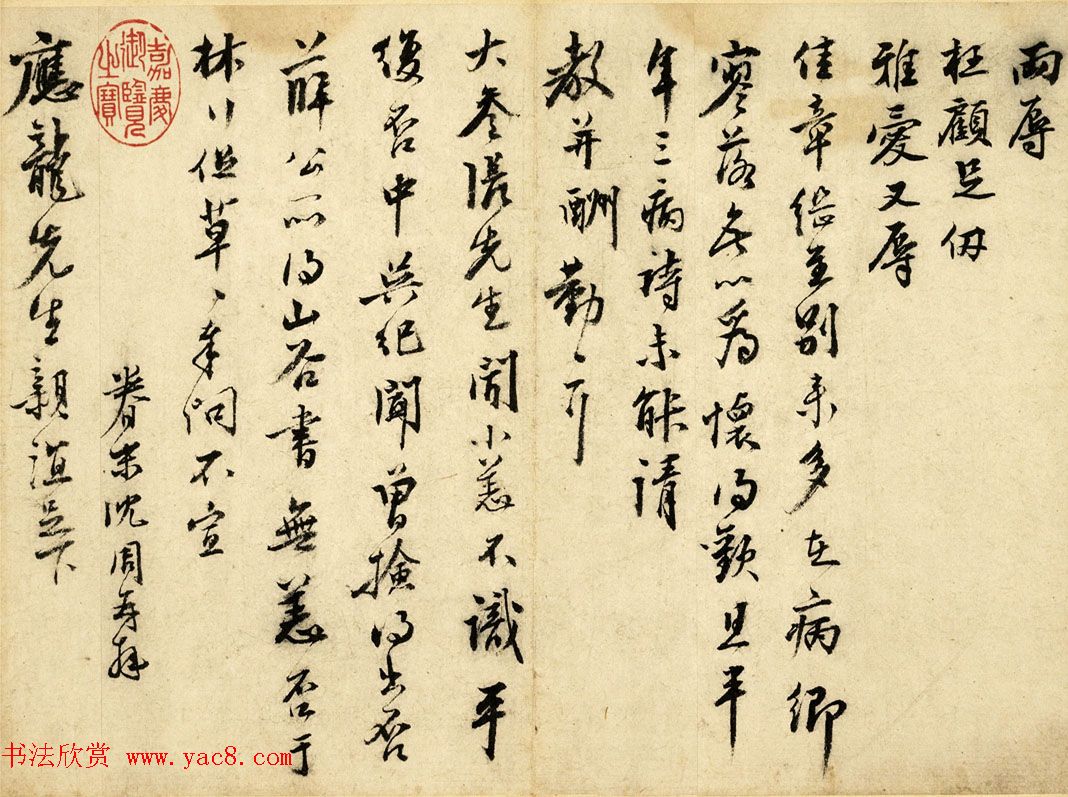 兩辱
枉顧足仞
雅愛又辱
佳章繼至別来多在病鄉
寥落無以爲懷得歎且半
年三病詩未能請
教并酬勤〻耳
大参張先生聞小恙不識平
復否中吴紀聞曾撿得出否
薛公所得山谷書無恙否于
林行但草〻奉問不宣
眷末沈周再拜
應龍先生親誼足下
嘉慶御覽之寶
书法欣赏 www.yac8.com